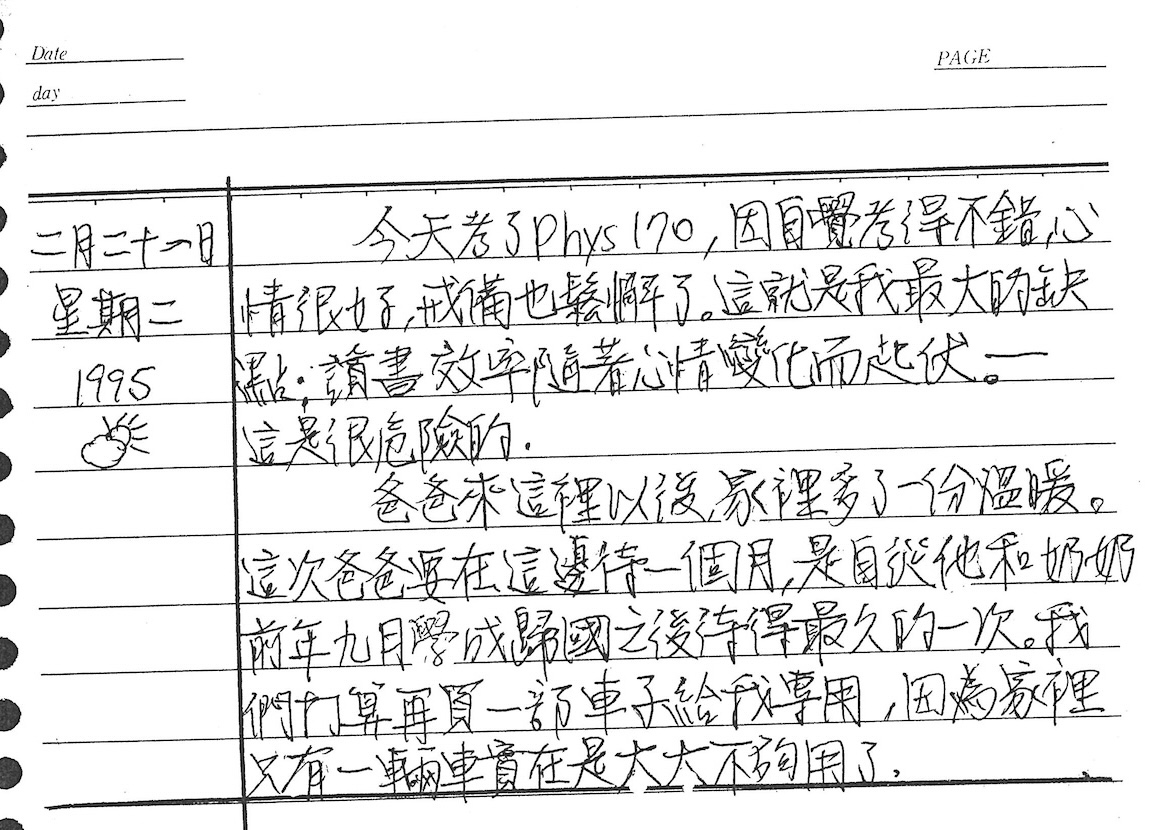 Date
PAGE
day
二月二十一日
星期二
1995
今天考了Phys 170,因自覺考得不錯,心
情很好,戒備也鬆懈了。這就是我最大的缺
點:讀書效率隨著心情變化而起伏。—
這是很危險的.
爸爸來這裡以後,家裡多了一份溫暖。
這次爸爸要在這邊待一個月,是自從他和奶奶
前年九月學成歸國之後待得最久的一次。我
們打算再買一部車子給我專用,因為家裡
只有一輛車實在是大大不夠用了.